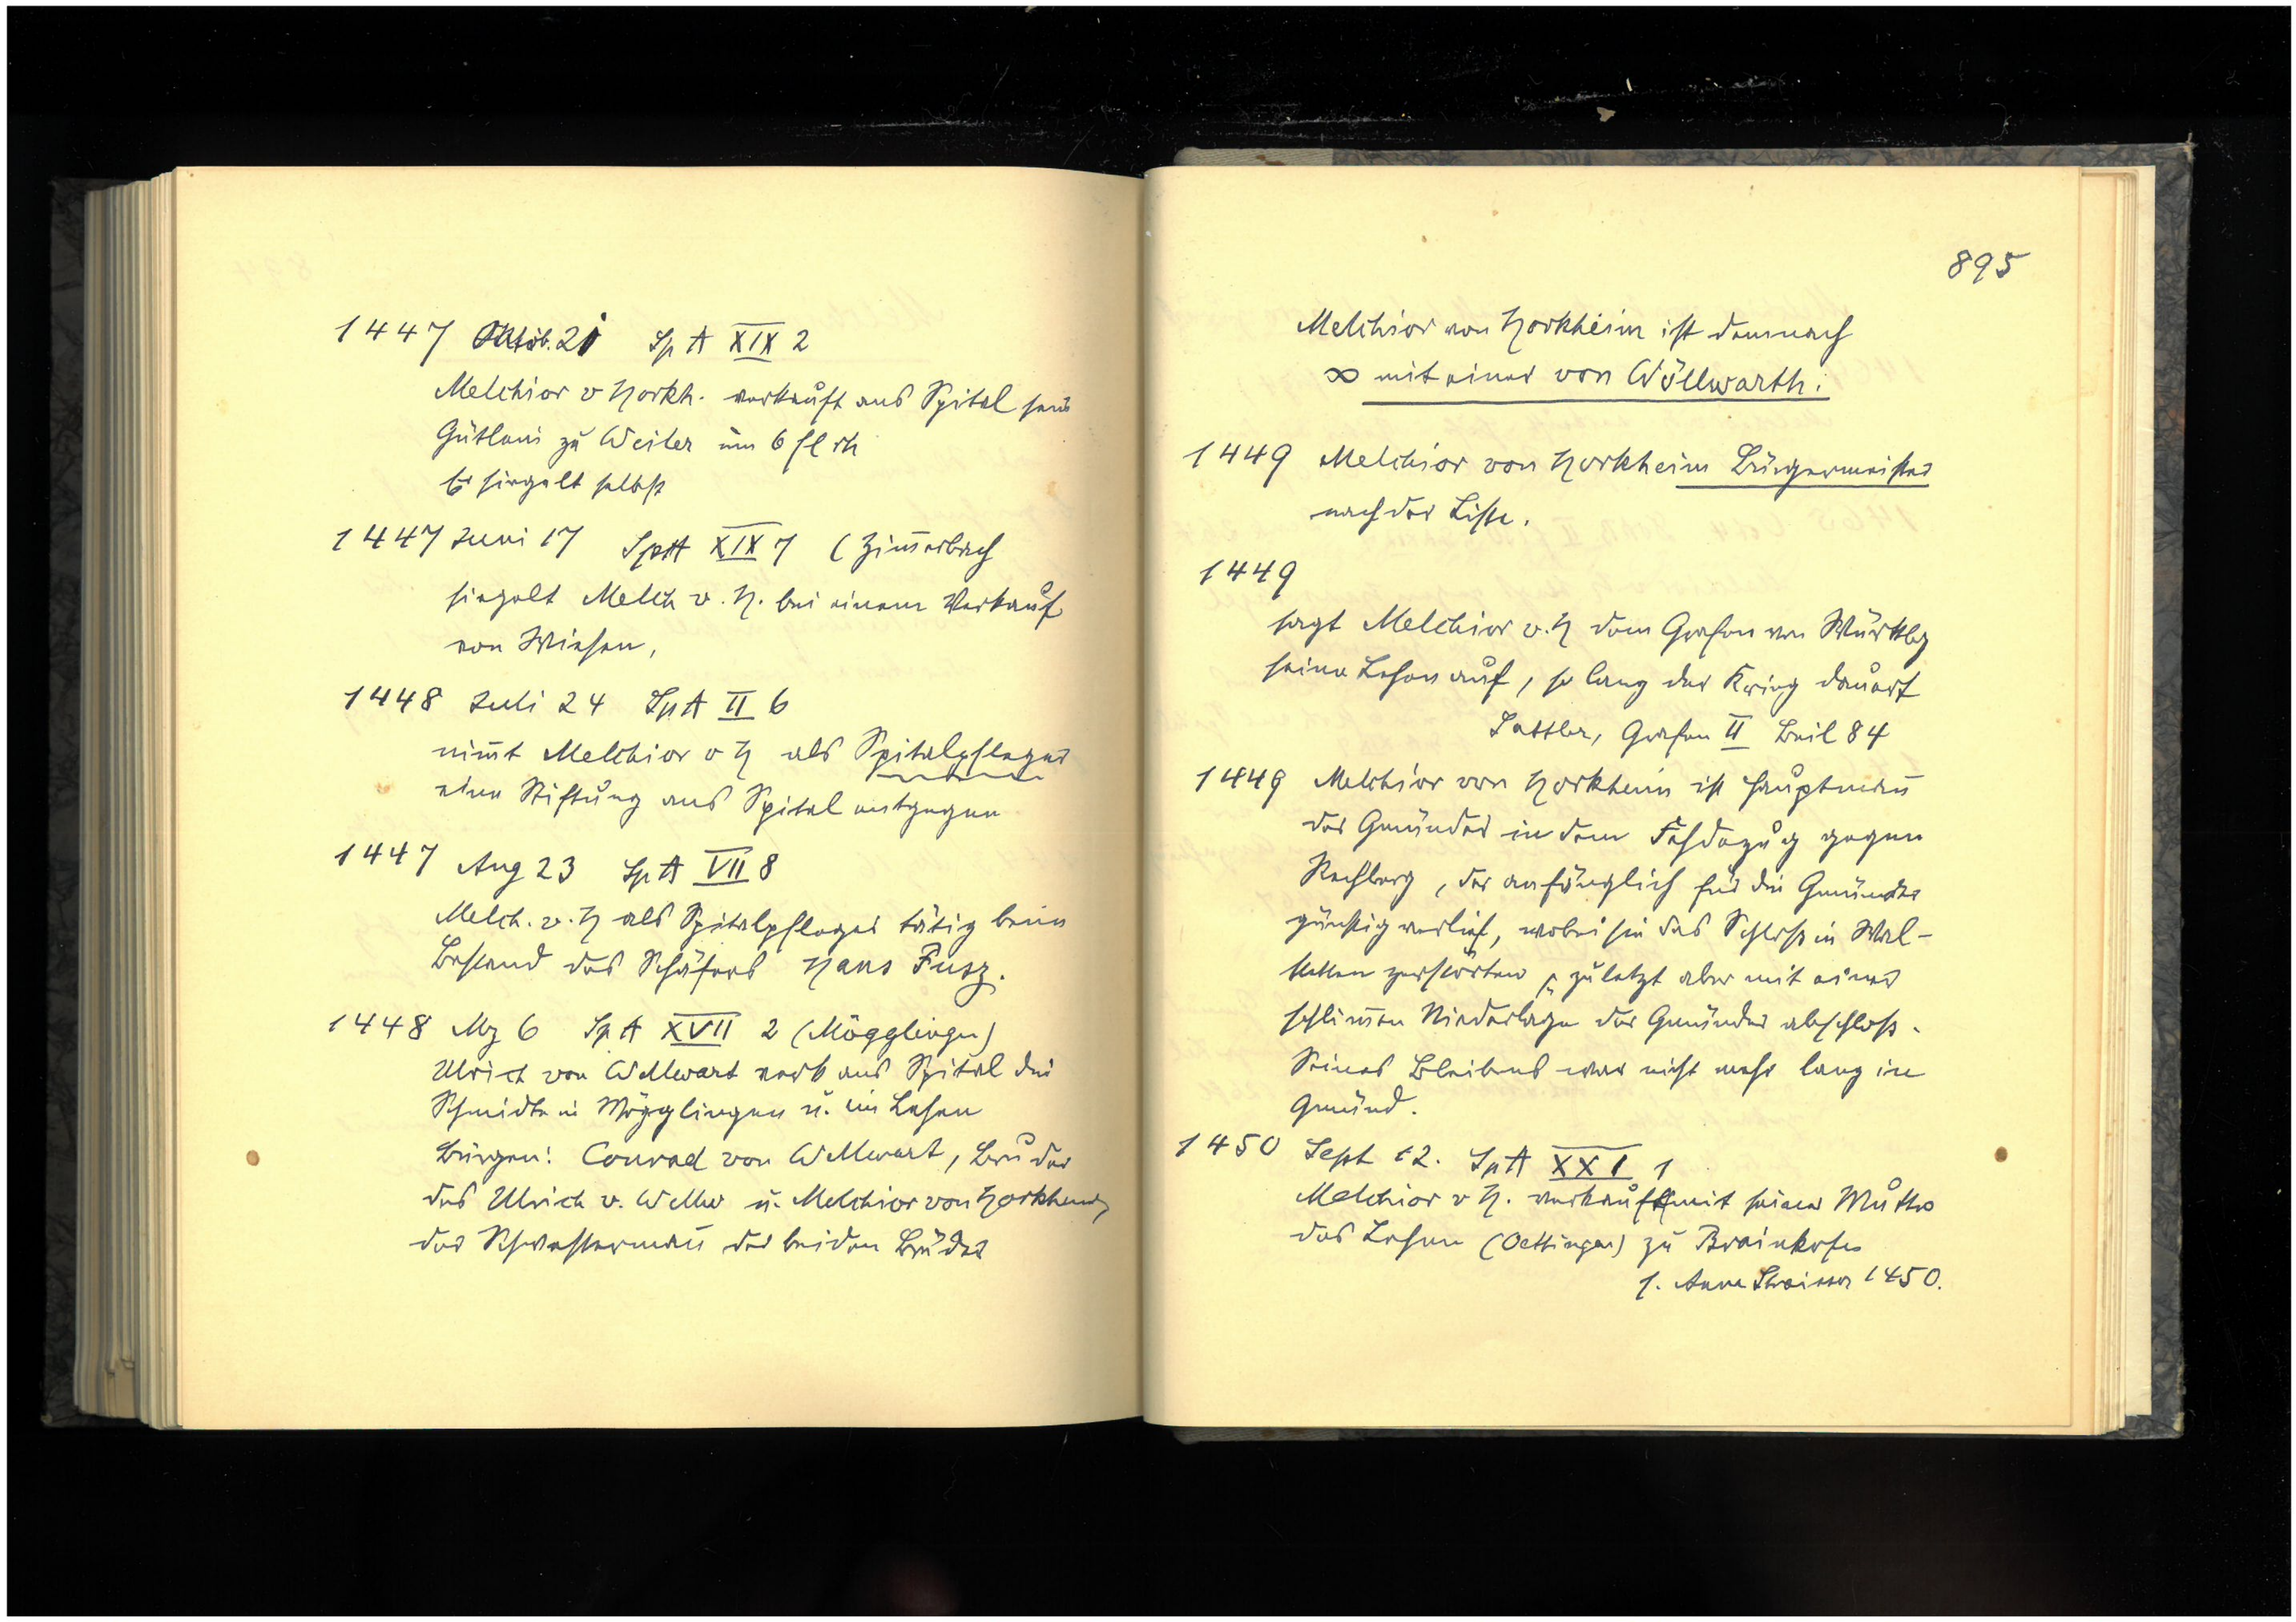 1447 Oktob. 21 Sp A XIX 2
Melchior v Horkh. verkauft ans Spital sein
Gütlein zu Weiler um 6 fl rh
Er siegelt selbst
1447 Juni 17 SpA XIX 7 (Zimerbach
siegelt Melch v. H. bei einem Verkauf
von Wiesen,
1448 Juli 24 Sp A II 6
nimt Melchior v H als Spitalpfleger
eine Stiftung ans Spital entgegen
1447 Aug 23 Sp A VII 8
Melch. v. H als Spitalpfleger tätig beim
Bestand des Schäfers Hans Fusz.
1448 Mz 6 Sp A XVII 2 (Mögglingen)
Ulrich von Wellwart verk ans Spital die
Schmidte in Mögglingen u. ein Lehen
Bürgen: Conrad von Wellwart, Bruder
des Ulrich v. Wellw u. Melchior von Horkheim,
der Schwesterman der beiden Brüder
895
Melchior von Horkheim ist demnach
∞ mit einer von Wöllwarth.
1449 Melchior von Horkheim Bürgermeister
nach der Liste.
1449
sagt Melchior v. H dem Grafen von Württbg
seine Lehen auf, so lang der Krieg dauert
Sattler, Grafen II Beil 84
1449 Melchior von Horkheim ist Hauptman
der Gmünder in dem Fehdezug gegen
Rechberg, der anfänglich für die Gmünder
günstig verlief, wobei sie das Schloss in Wal-
stetten zerstörten, zuletzt aber mit einer
schlimen Niederlage der Gmünder abschloss.
Seines Bleibens war nicht mehr lang in
Gmünd.
1450 Sept 12. SpA XXI 1
Melchior v H. verkauft mit seiner Mutter
das Lehen (Oettingen) zu Brainkofen
s. Anna 1450.